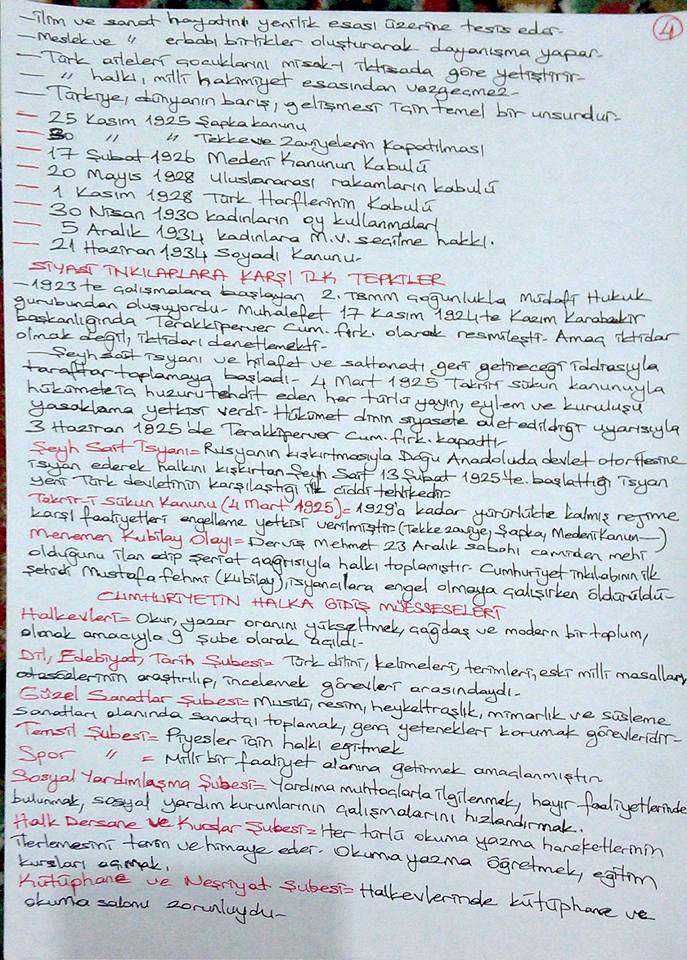 4
- İlim ve sanat hayatını yenilik esası üzerine tesis eder-
- Meslek ve " erbabı birlikler oluşturarak dayanışma yapar-
- Türk aileleri çocuklarını misak-ı iktisada göre yetiştirir-
- " halkı, milli hakimiyet esasından vazgeçmez-
- Türkiye, dünyanın barış, gelişmesi için temel bir unsurdur-
- 25 Kasım 1925 Şapka kanunu
- 30 " " Tekke ve Zaviyelerin Kapatılması
- 17 Şubat 1926 Medeni Kanunun Kabulü
- 20 Mayıs 1928 Uluslararası rakamların kabulü
- 1 Kasım 1928 Türk Harflerinin Kabulü
- 30 Nisan 1930 kadınların oy kullanmaları
- 5 Aralık 1934 kadınlara M.v. seçilme hakkı.
- 21 Haziran 1934 Soyadı Kanunu-
SİYASİ İNKILARLARA KARŞI İLK TEPKİLER
- 1923'te çalışmalara başlayan 2. TBMM çoğunlukla Müdafi Hukuk
gurubundan oluşuyordu- Muhalefet 17 Kasım 1924'te Kazım Karabekir
başkanlığında Terakkiperver Cum. fırk. olarak resmileşti- Amaç iktidar
olmak değil, iktidarı denetlemekti-
- Şeyh Sait isyanı ve hilafet ve saltanatı geri getireceği iddiasıyla
taraftar toplamaya başladı- 4 Mart 1925 Takriri sükun kanunuyla
hükümete huzuru tehdit eden her türlü yayın, eylem ve kuruluşu
yasaklama yetkisi verdi- Hükümet dinin siyasete alet edildiği uyarısıyla
3 Haziran 1925'de Terakkiperver Cum. fırk. kapattı-
Şeyh Sait İsyanı= Rusyanın kışkırtmasıyla Doğu Anadoluda devlet otoritesine
isyan ederek halkını kışkırtan Şeyh Sait 13 Şubat 1925'te başlattığı isyan
yeni Türk devletinin karşılaştığı ilk ciddi tehlikedir-
Takrir-i Sükun Kanunu (4 Mart 1925)= 1929'a kadar yürürlükte kalmış rejime
karşı faaliyetleri engelleme yetkisi verilmiştir (Tekke zaviye, Şapka, Medeni Kanun—)
Menemen Kubilay Olayı= Derviş Mehmet 23 Aralık sabahı camiden mehi
olduğunu ilan edip şeriat çağrısıyla halkı toplamıştır- Cumhuriyet inkılabının ilk
şehidi Mustafa Fehmi (Kubilay), isyancılara engel olmaya çalışırken öldürüldü-
CUMHURİYETİN HALKA GİDİŞ MÜESSESELERİ
Halkevleri= Okur, yazar oranını yükseltmek, çağdaş ve modern bir toplum,
olmak amacıyla 9 şube olarak açıldı-
Dil, Edebiyat, Tarih Şubesi= Türk dilini, kelimeleri, terimleri, eski milli masalları,
atasözlerinin araştırılıp, incelemek görevleri arasındaydı-
Güzel Sanatlar Şubesi= Musiki, resim, heykeltraşlık, mimarlık ve süsleme
sanatları alanında sanatçı toplamak, genç yetenekleri korumak görevleridir-
Temsil Şubesi= Piyesler için halkı eğitmek
Spor " = Milli bir faaliyet alanına getirmek amaçlanmıştır
Sosyal Yardımlaşma Şubesi= Yardıma muhtaçlarla ilgilenmek, hayır faaliyetlerinde
bulunmak, sosyal yardım kurumlarının çalışmalarını hızlandırmak.
Halk Dersane ve Kurslar Şubesi= Her türlü okuma yazma hareketlerinin
ilerlemesini temin ve himaye eder- Okuma yazma öğretmek, eğitim
kursları açmak.
Kütüphane ve Neşriyat Şubesi= Halkevlerinde kütüphane ve
okuma salonu zorunluydu-